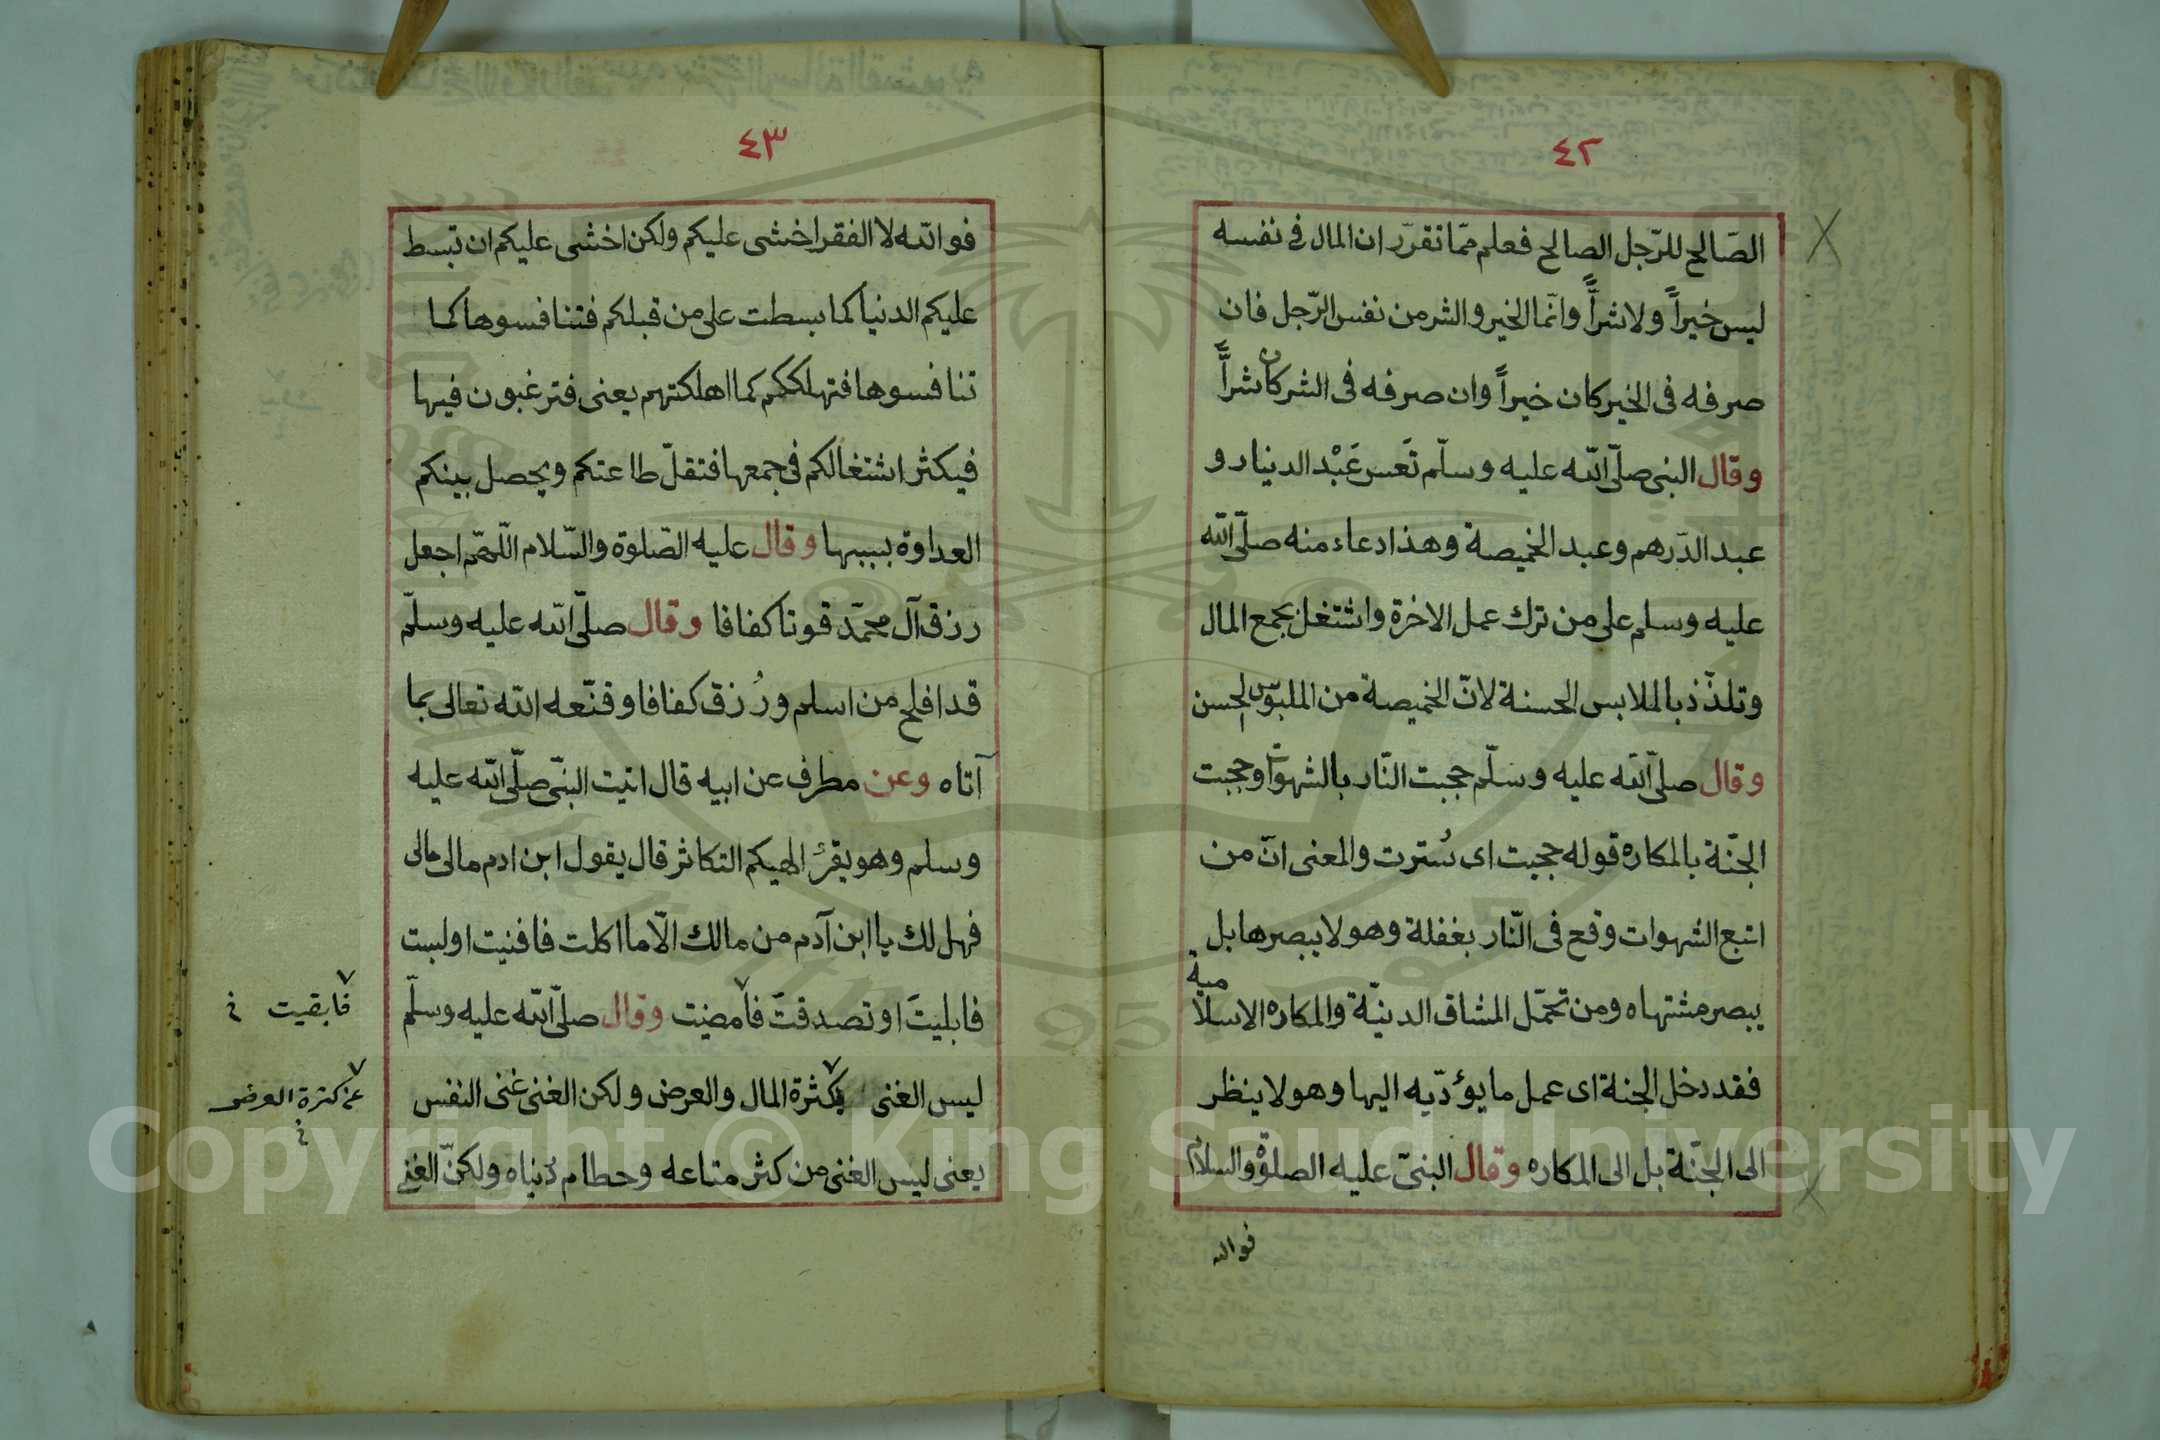 ٤٢
الصّالح للرّجل الصالح فعلم ممّا تقرّر ان المال فى نفسه
ليس خيراً ولا شراًّ وانّما الخير والشر من نفس الرّجل فان
صرفه فى الخير كان خيراً وان صرفه فى الشر كان شراًّ
وقال النبى صلّى اللّه عليه وسلّم تَعس عَبْد الدنيار و
عبد الدّرهم وعبد الخميصة وهذا دعاء منه صلّى اللّه
عليه وسلم على من ترك عمل الاخرة واشتغل بجمع المال
وتلذّذ بالملابس الحسنة لانّ الخميصة من الملبوس الحسن
وقال صلّى اللّه عليه وسلّم حجبت النّار بالشهوات وحجبت
الجنّة بالمكاره قوله حجبت اى سُترت والمعنى انّ من
اتبع الشهوات وقع فى النّار بغفلة وهو لا يبصرها بل
يبصر مشتهاه ومن تحمّل المشاق الدنيّة والمكاره الاسلامية
فقد دخل الجنة اى عمل ما يؤدّيه اليها وهو لا ينظر
الى الجنّة بل الى المكاره وقال النبىّ عليه الصلوة والسلام
فوالله
٤٣
فواللّه لا الفقر اخشى عليكم ولكن اخشى عليكم ان تبسط
عليكم الدنيا كما بسطت على من قبلكم فتنافسوها كما
تنافسوها فتهلككم كما اهلكتهم يعنى فترغبون فيها
فيكثر اشتغالكم فى جمعها فتقلّ طاعتكم ويحصل بينكم
العداوة بسببها وقال عليه الصّلوة والسّلام اللّهمّ اجعل
رزق آل محمّد قوتا كفافا وقال صلّى اللّه عليه وسلّم
قد افلح من اسلم ورُزق كفافا وقنّعه اللّه تعالى بما
آتاه وعن مطرف عن ابيه قال اتيت النبّى صلّى اللّه عليه
وسلم وهو يقرئ الهيكم التكاثر قال يقول ابن ادم مالى مالى
فهل لك يا ابن آدم من مالك الّا ما اكلت فافنيت او لبست
فابليتَ او تصدقتَ فامضيت وقال صلّى اللّه عليه وسلّم
ليس الغنى بكثرة المال والعرض ولكن الغنى غنى النفس
يعنى ليس الغنى من كثر متاعه وحطام دُنياه ولكنّ الغنى
فابقيت
عن كثرة العرض
Copyright © King Saud University